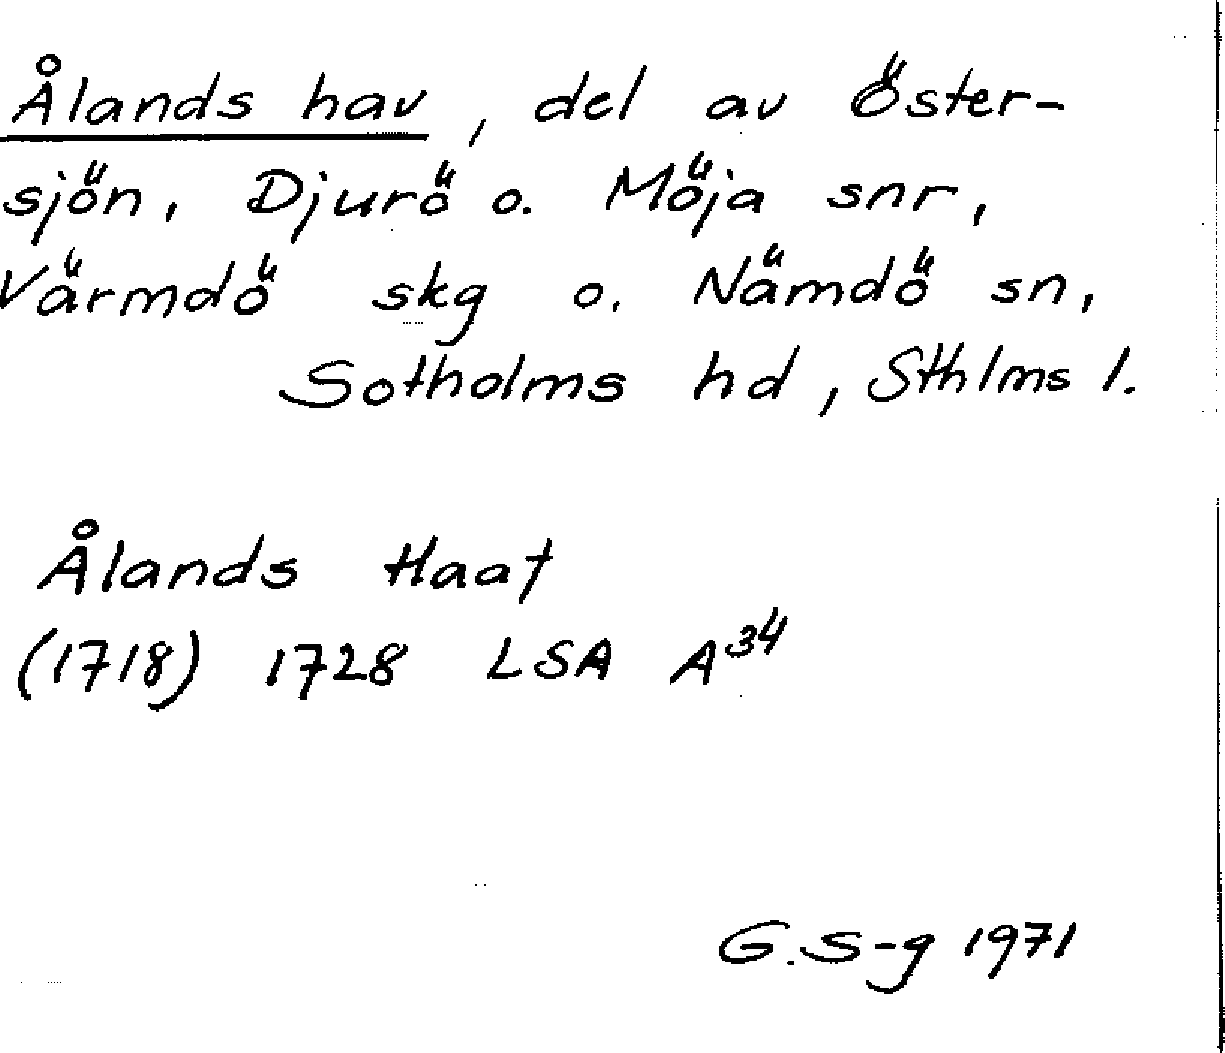 Ålands hav, del av Öster-
sjön, Djurö o. Möja snr,
Värmdö skg o. Nämdö sn,
Sotholms hd, Sthlms l.
Ålands Haaf
(1718) 1728 LSA A³⁴
G. S-g 1971